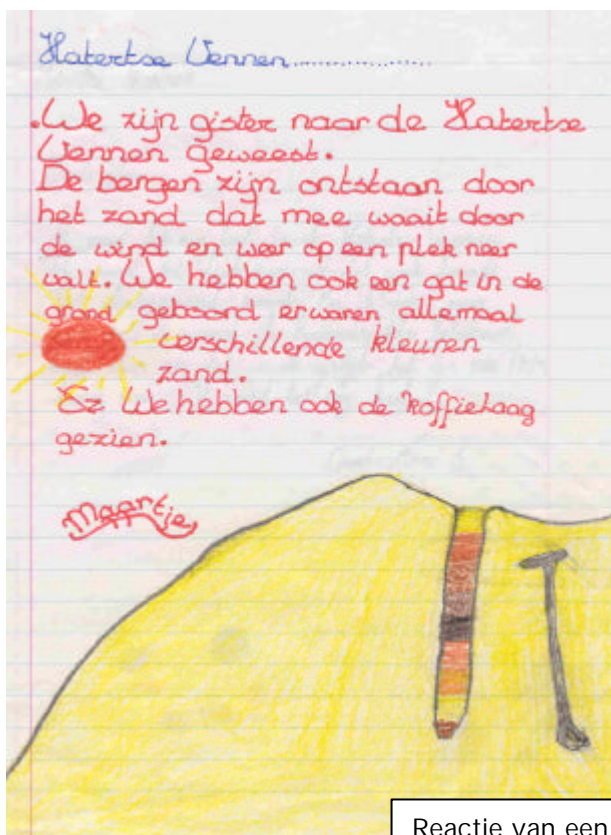 Hatertse Vennen..................
.We zijn gister naar de Hatertse
Vennen geweest.
De bergen zijn ontstaan door
het zand dat mee waait door
de wind en weer op een plek neer
valt. We hebben ook een gat in de
grond geboord er waren allemaal
verschillende kleuren
zand.
We hebben ook de koffielaag
gezien.
Maartje
Reactie van een